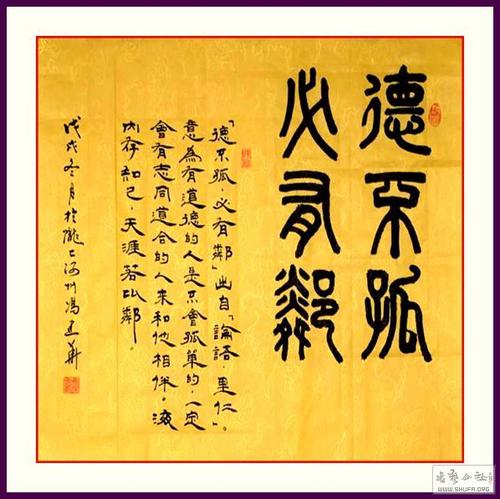 德不孤
必有鄰
「德不孤，必有鄰」出自「論語·里仁」。
意為有道德的人是不會孤單的，一定
會有志同道合的人来和他相伴。海
內存知己，天涯若比鄰。
戊戌冬月於隴上河州馮建華
书艺公社
WWW.SHUFA.ORG